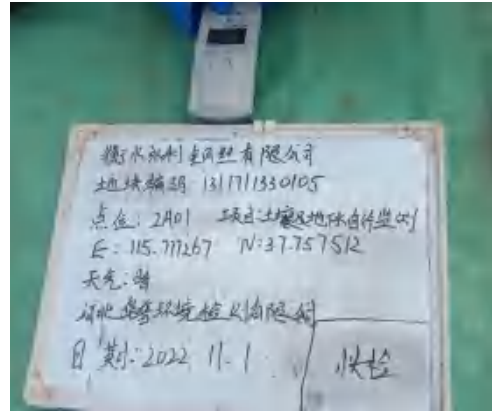 衡水永利金网业有限公司
地块编码 1311711330105
点位: 2A01 项目:土壤及地下水自行监测
E: 115.777267 N: 37.757512
天气: 晴
河北 环境检测有限公司
日期: 2022 11. 1
快检